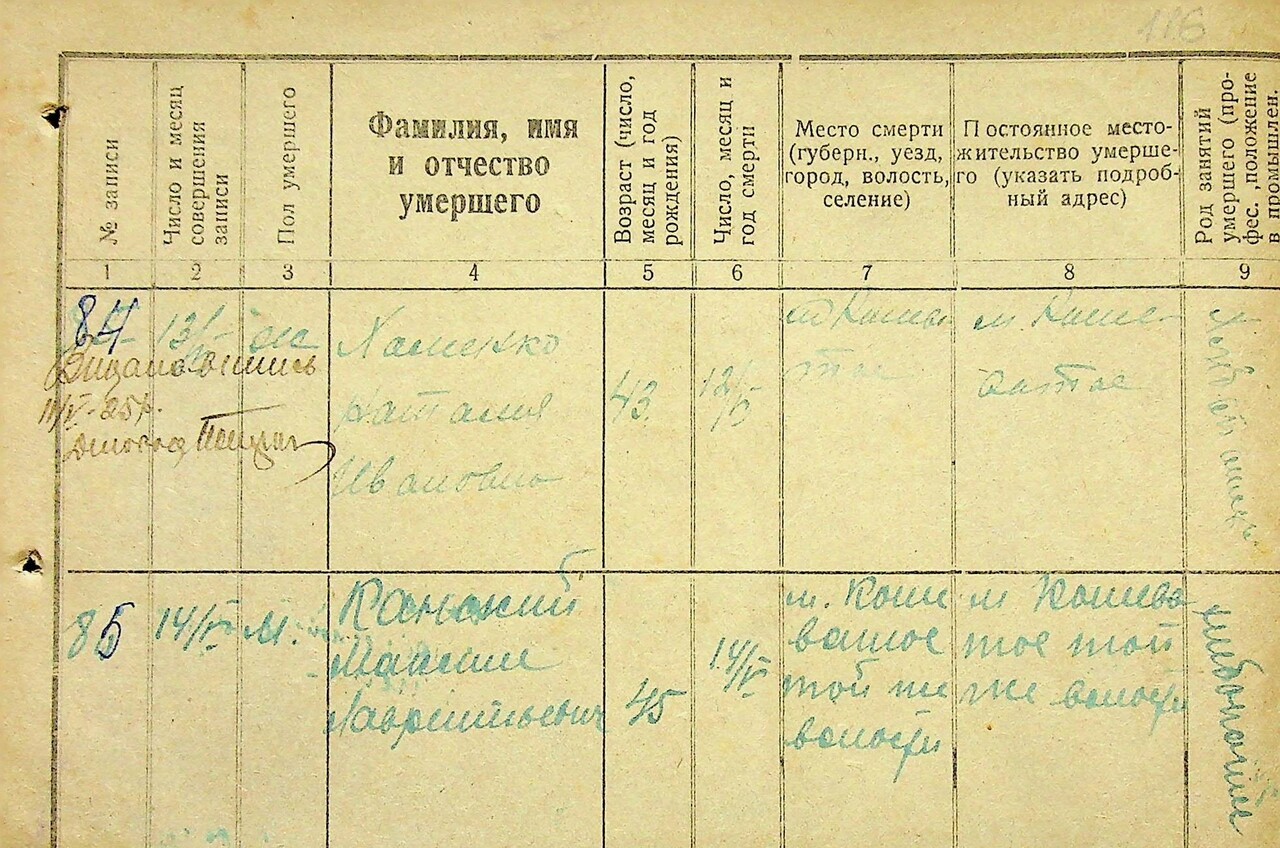 116
№ записи
Число и месяц
совершения
записи
Пол умершего
Фамилия, имя
и отчество
умершего
Возраст (число,
месяц и год
рождения)
Число, месяц и
год смерти
Место смерти
(губерн., уезд,
город, волость,
селение)
Постоянное место-
жительство умерше-
го (указать подроб-
ный адрес)
Род занятий
умершего (про-
фес., положение
в промышлен.
1 2 3 4 5 6 7 8 9
84
13/V
ж
Хоменко
Наталия
Ивановна
43
12/V
85
14/V
М.
Максим
Лаврентьевич
45
14/V
м. Коше
ватое
той же
волости
м Кошева
тое той
же волости